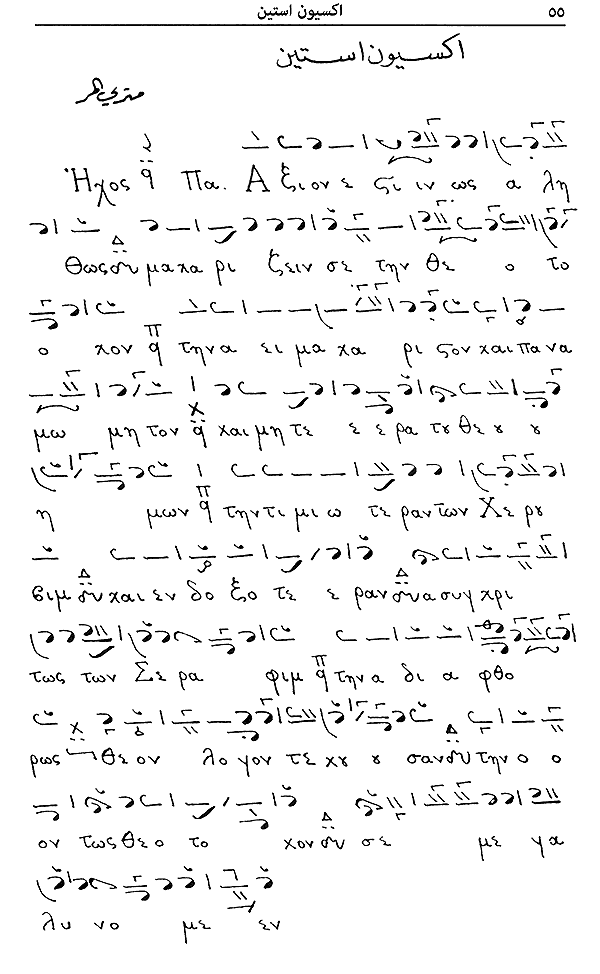 ٥٥ اكسيون استين
اكسيون استين
متري المر
Ἦχος Πα. Αξιον ε ςι ιν ως α λη
θως μακα ρι ζειν σε την θε ο το
ο κον την α ει μα κα ρι ςον και πανα
μω μη τον και μη τε ε ε ρα τȣ θε ȣ ȣ
η μων την τι μι ω τε ραν των Χε ρȣ
βιμ και εν δο ξο τε ε ραν ασυγκρι
τως των Σε ρα φιμ την α δι α φθο
ρως θε ον λο γον τε κȣ ȣ σαν την ο ο
ον τως θε ο το κον σε με γα
λυ νο με εν